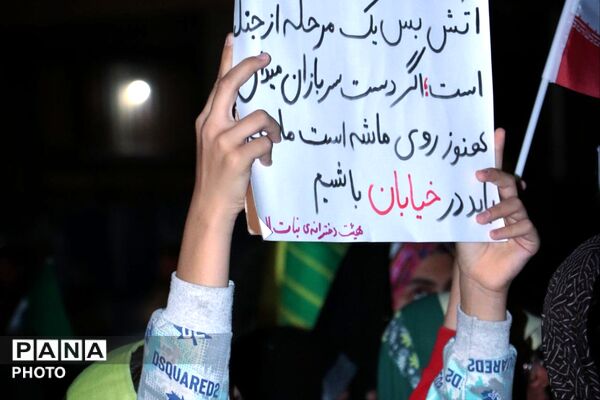 آتش بس یک مرحله از جنگ
است؛ اگر دست سربازان میدان
هنوز روی ماشه است ما
باید در خیابان باشیم
هیئت دخترانه‌ی نبات
PANA
PHOTO
DSQUARED2
DSQ